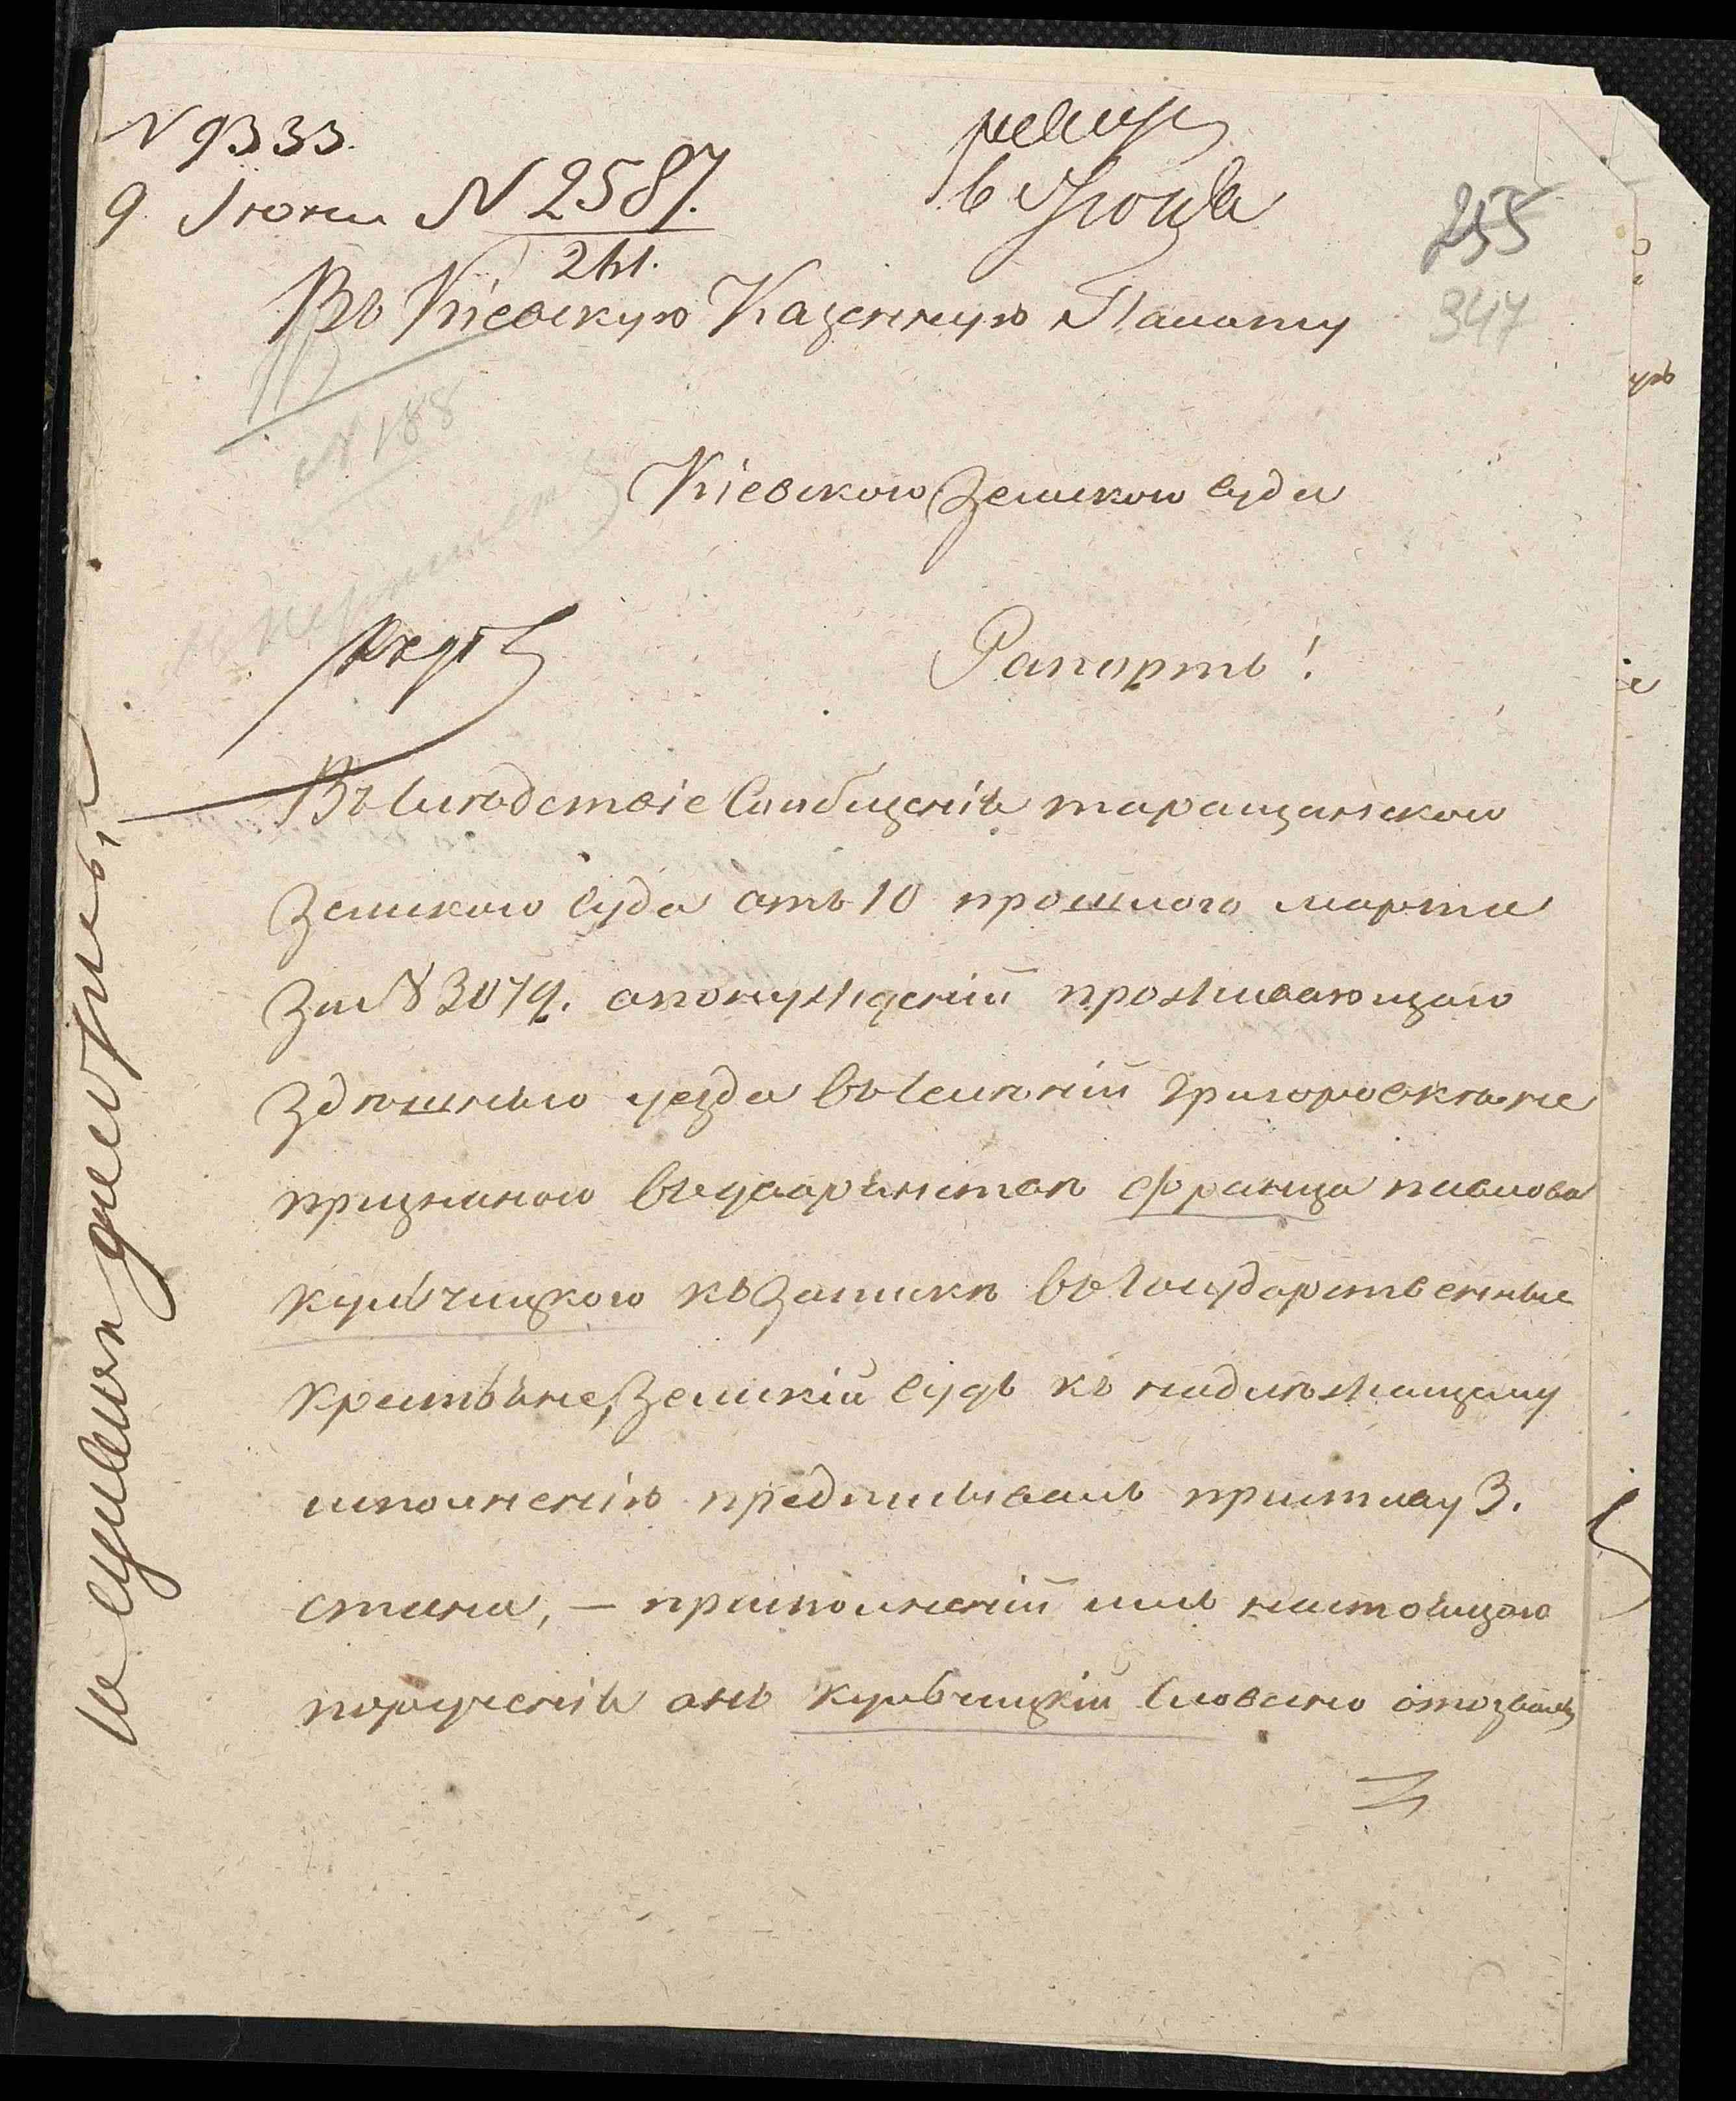 N 9333.
9 Июня N 2587.
2 ст.
255
347
Въ Кіевскую Казенную Палату
N 188
Кіевского Земского Суда
Рапортъ!
Въ Слѣдствіе Сообщенія таращанского
Земского Суда отъ 10 прошлого марта
За N 3079. опонужденіи проживающаго
Здѣшнего уезда въ Селѣніи Григоровкѣ не
признаного въ дворянствѣ Франца павлова
кульчицкого къ Запискѣ въ Государственные
Крестьяне, Земскій Судъ къ надлѣжащему
исполненію предписывалъ приставу 3.
стана, — приисполненіи имъ настоящего
порученія онъ кульчицкій Словесно отозвался